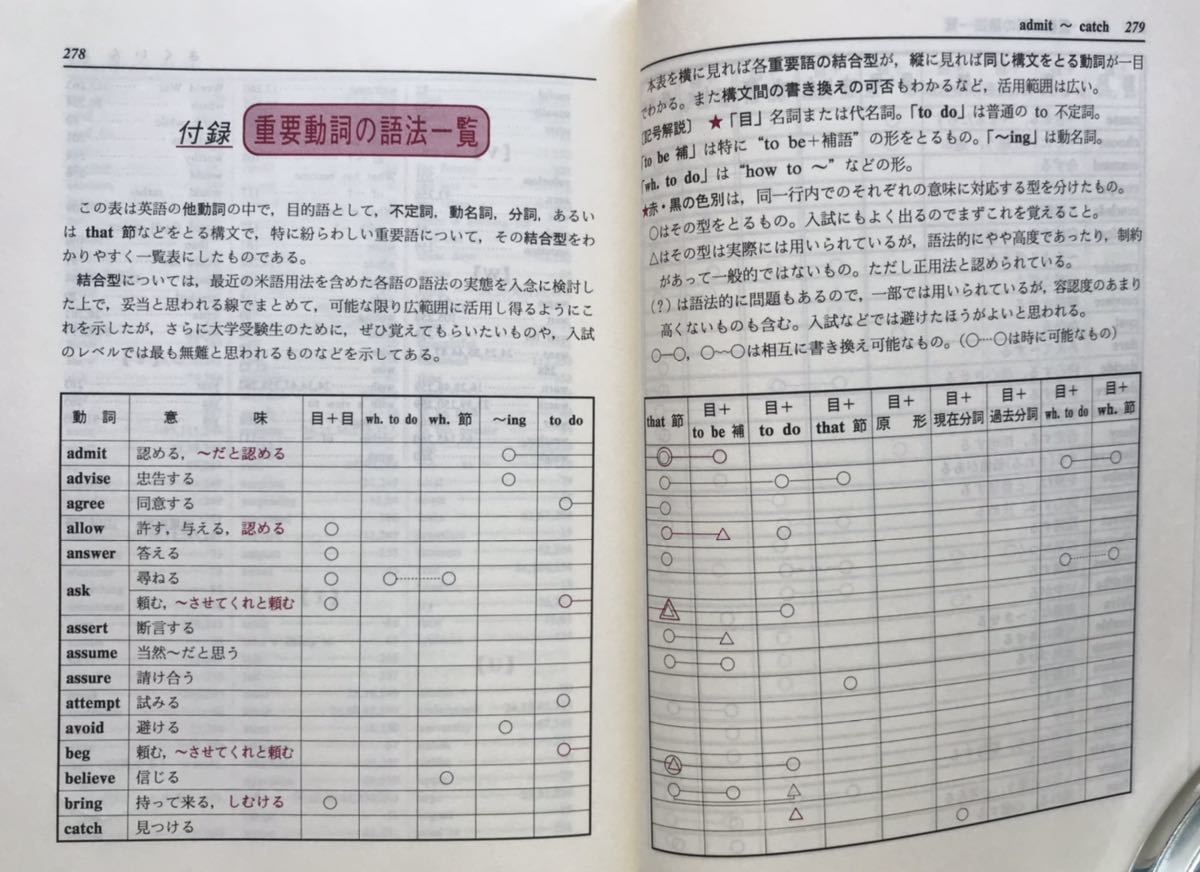 278
付録 重要動詞の語法一覧
この表は英語の他動詞の中で，目的語として，不定詞，動名詞，分詞，あるい
は that 節などをとる構文で，特に紛らわしい重要語について，その結合型をわ
かりやすく一覧表にしたものである。
結合型については，最近の米語用法を含めた各語の語法の実態を入念に検討し
た上で，妥当と思われる線でまとめて，可能な限り広範囲に活用し得るようにこ
れを示したが，さらに大学受験生のために，ぜひ覚えてもらいたいものや，入試
のレベルでは最も無難と思われるものなどを示してある。
動詞 意味 目＋目 wh. to do wh. 節 〜ing to do
admit 認める，〜だと認める ○
advise 忠告する ○
agree 同意する ○
allow 許す，与える，認める ○
answer 答える ○
ask 尋ねる ○ ○……○
頼む，〜させてくれと頼む ○ ○
assert 断言する
assume 当然〜だと思う
assure 請け合う
attempt 試みる ○
avoid 避ける ○
beg 頼む，〜させてくれと頼む ○
believe 信じる ○
bring 持って来る，しむける ○
catch 見つける
admit 〜 catch 279
本表を横に見れば各重要語の結合型が，縦に見れば同じ構文をとる動詞が一目
でわかる。また構文間の書き換えの可否もわかるなど，活用範囲は広い。
〔記号解説〕 ★「目」名詞または代名詞。「to do」は普通の to 不定詞。
「to be 補」は特に “to be＋補語” の形をとるもの。「〜ing」は動名詞。
「wh. to do」は “how to 〜” などの形。
★赤・黒の色別は，同一行内でのそれぞれの意味に対応する型を分けたもの。
○はその型をとるもの。入試にもよく出るのでまずこれを覚えること。
△はその型は実際には用いられているが，語法的にやや高度であったり，制約
があって一般的ではないもの。ただし正用法と認められている。
（？）は語法的に問題もあるので，一部では用いられているが，容認度のあまり
高くないものも含む。入試などでは避けたほうがよいと思われる。
○─○，○〜○は相互に書き換え可能なもの。（○…○は時に可能なもの）
that 節 目＋to be 補 目＋to do 目＋that 節 目＋原形 目＋現在分詞 目＋過去分詞 目＋wh. to do 目＋wh. 節